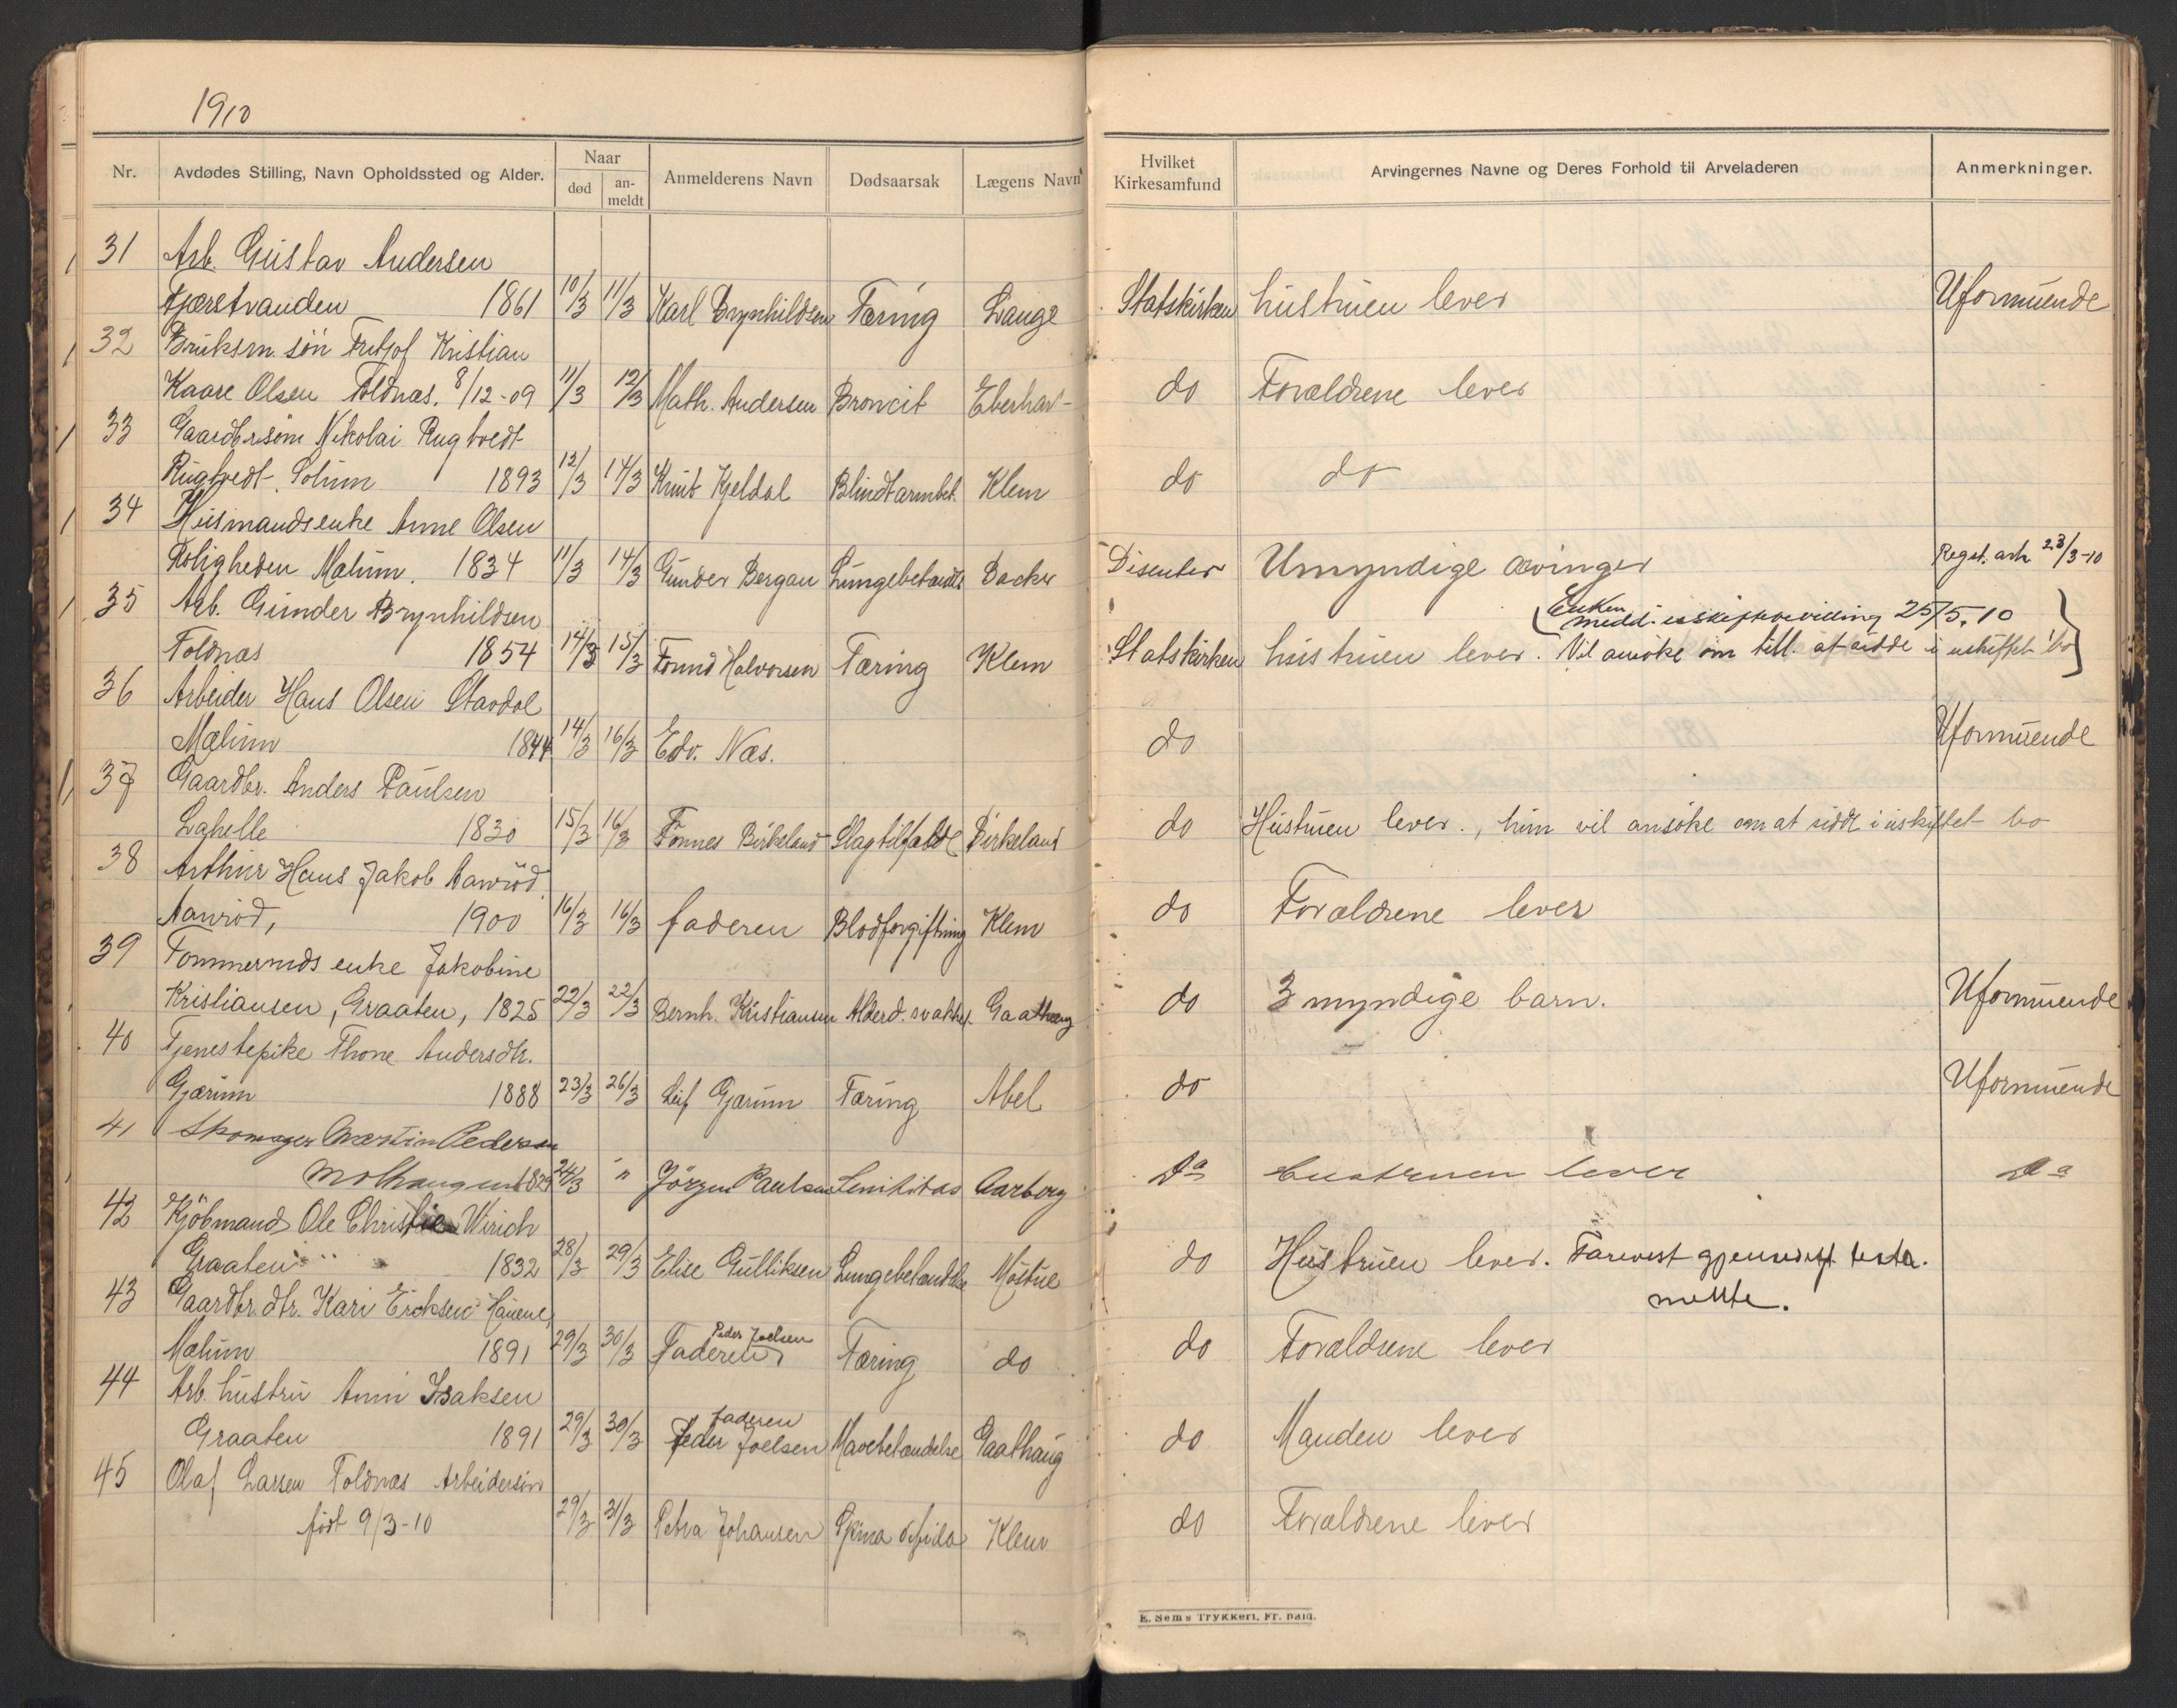 1910
Nr. Avdødes Stilling, Navn Opholdssted og Alder. Naar død an-meldt Anmelderens Navn Dødsaarsak Lægens Navn Hvilket Kirkesamfund Arvingernes Navne og Deres Forhold til Arveladeren Anmerkninger.
31 Arb. Gustav Andersen
1861 10/3 11/3 Karl Brynhildsen Tæring Lange Statskirken hustruen lever Uformuende
32 Bruksm. søn Fritjof Kristian
Kaare Olsen Foldnæs. 8/12-09 11/3 12/3 Math. Andersen Broncit Eberhar- do Forældrene lever
33 Gaardbr søn Nikolai Rugtvedt
Rugtvedt Solum 1893 12/3 14/3 Knut Kjeldal Blindtarmbet. Klem do do
34 Husmandsenke Anne Olsen
Roligheden Mælum. 1834 11/3 14/3 Gunder Bergan Lungebetændls Backer Disenter Umyndige arvinger Regst. ark 23/3-10
35 Arb. Gunder Brynhildsen
(Enken
medd. uskiftebevilling 25/5.10
Foldnæs 1854 14/3 15/3 Halvorsen Tæring Klem Statskirken hustruen lever. Vil ansøke om till. at sidde i uskiftet bo)
36 Arbeider Hans Olsen Stavdal
Mælum 1844 14/3 16/3 Edv. Næs. do Uformuende
37 Gaardbr. Anders Paulsen
Lahelle 1830 15/3 16/3 Tønnes Birkeland Slagtilfælde Birkeland do Hustruen lever., hun vil ansøke om at sidde i uskiftet bo
38 Arthur Hans Jakob Aanrød
Aanrød, 1900 16/3 16/3 faderen Blodforgiftning Klem do Forældrene lever
39 Tømmermds enke Jakobine
Kristiansen, Graaten, 1825 22/3 22/3 Bernh. Kristiansen Alderd. svakhet Gaathaug do 3 myndige barn. Uformuende
40 Tjenestepike Thone Andersdtr.
Gjærum 1888 23/3 26/3 Leif Gjærum Tæring Abel do Uformuende
41 Skomager Martin Pedersen
Molhaugen 1829 24/3 " Jörgen Paulsen Senilitas Aarberg Do Hustruen lever Do
42 Kjöbmand Ole Christie Wirich
Graaten 1832 28/3 29/3 Elise Gulliksen Lungebetændelse Møstue do Hustruen lever. gjensidig testa-
mente.
43 Gaardbr. dtr. Kari Eriksen Hauene,
Mælum 1891 29/3 30/3 Peder Joelsen Faderen Tæring do do Forældrene lever
44 Arb. hustru Anni Isaksen
Graaten 1891 29/3 30/3 faderen Peder Joelsen Mavebetændelse Gaathaug do Manden lever
45 Olaf Larsen Foldnæs Arbeidersøn
født 9/3-10 29/3 31/3 Petra Johansen Spina bifida Klem do Forældrene lever
E. Sem's Trykkeri, Fr. hald.